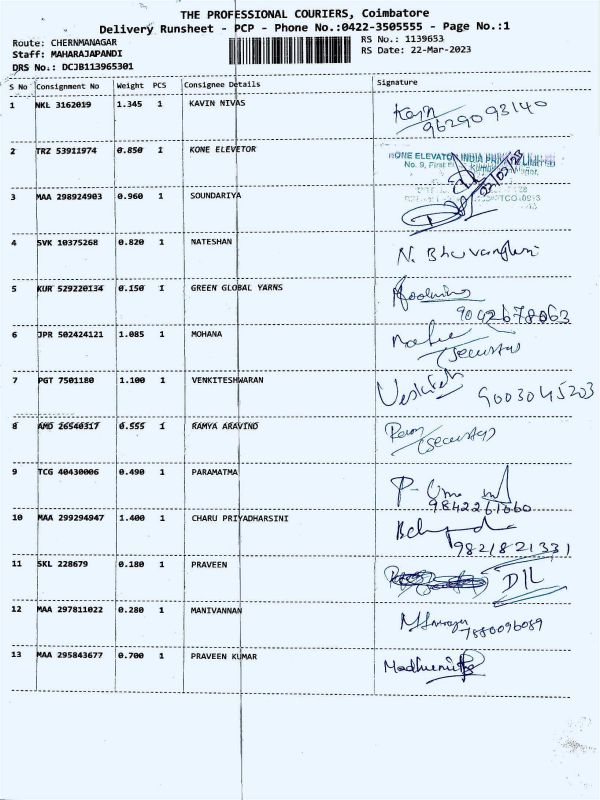 THE PROFESSIONAL COURIERS, Coimbatore
Delivery Runsheet - PCP - Phone No.:0422-3505555 - Page No.:1
Route: CHERNMANAGAR
RS No.: 1139653
Staff: MAHARAJAPANDI
RS Date: 22-Mar-2023
DRS No.: DCJB113965301
S No Consignment No Weight PCS Consignee Details Signature
1 NKL 3162019 1.345 1 KAVIN NIVAS
9629093140
2 TRZ 53911974 0.850 1 KONE ELEVETOR
KONE ELEVATOR INDIA PRIVATE LIMITED
No. 9, First
3 MAA 298924903 0.960 1 SOUNDARIYA
4 SVK 10375268 0.820 1 NATESHAN
N. Bhuvaneshwari
5 KUR 529220134 0.150 1 GREEN GLOBAL YARNS
9042678063
6 JPR 502424121 1.085 1 MOHANA
(Security)
7 PGT 7501180 1.100 1 VENKITESHWARAN
Venkitesh
9003045203
8 AMD 26540317 0.555 1 RAMYA ARAVIND
(Security)
9 TCG 40430006 0.490 1 PARAMATMA
9842261660
10 MAA 299294947 1.400 1 CHARU PRIYADHARSINI
9821821331
11 SKL 228679 0.180 1 PRAVEEN
D/L
12 MAA 297811022 0.280 1 MANIVANNAN
7880096089
13 MAA 295843677 0.700 1 PRAVEEN KUMAR